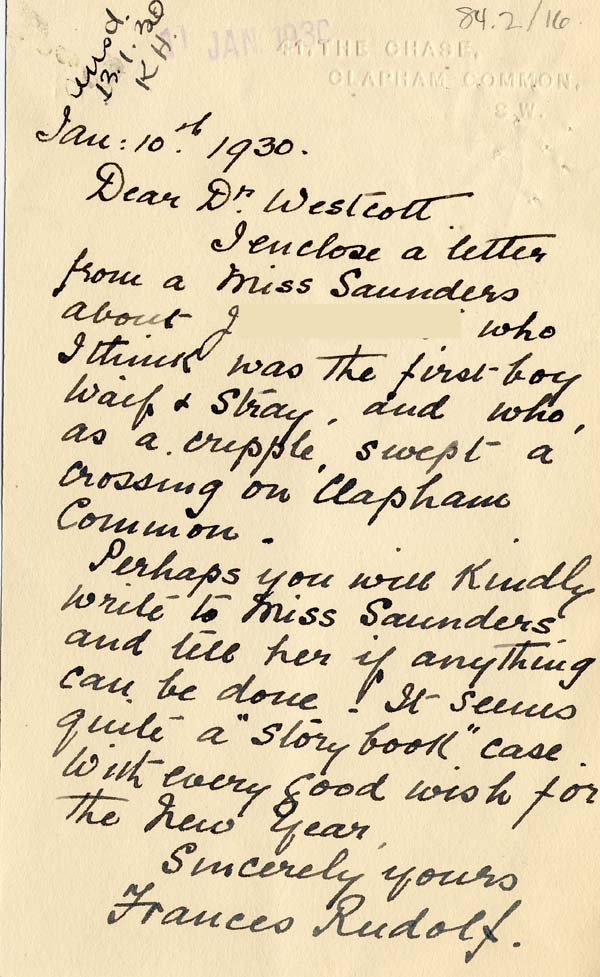 84.2/16
ansd.
13.1.30
K H.
11 JAN 1930
THE CHASE,
CLAPHAM COMMON,
S.W.
Jan: 10th. 1930.
Dear Dr. Westcott
I enclose a letter
from a Miss Saunders
about J who
I think was the first boy
Waif & Stray, and who,
as a cripple, swept a
crossing on Clapham
Common.
Perhaps you will kindly
write to Miss Saunders
and tell her if anything
can be done. It seems
quite a "story book" case.
With every good wish for
the New Year,
Sincerely yours
Frances Rudolf.